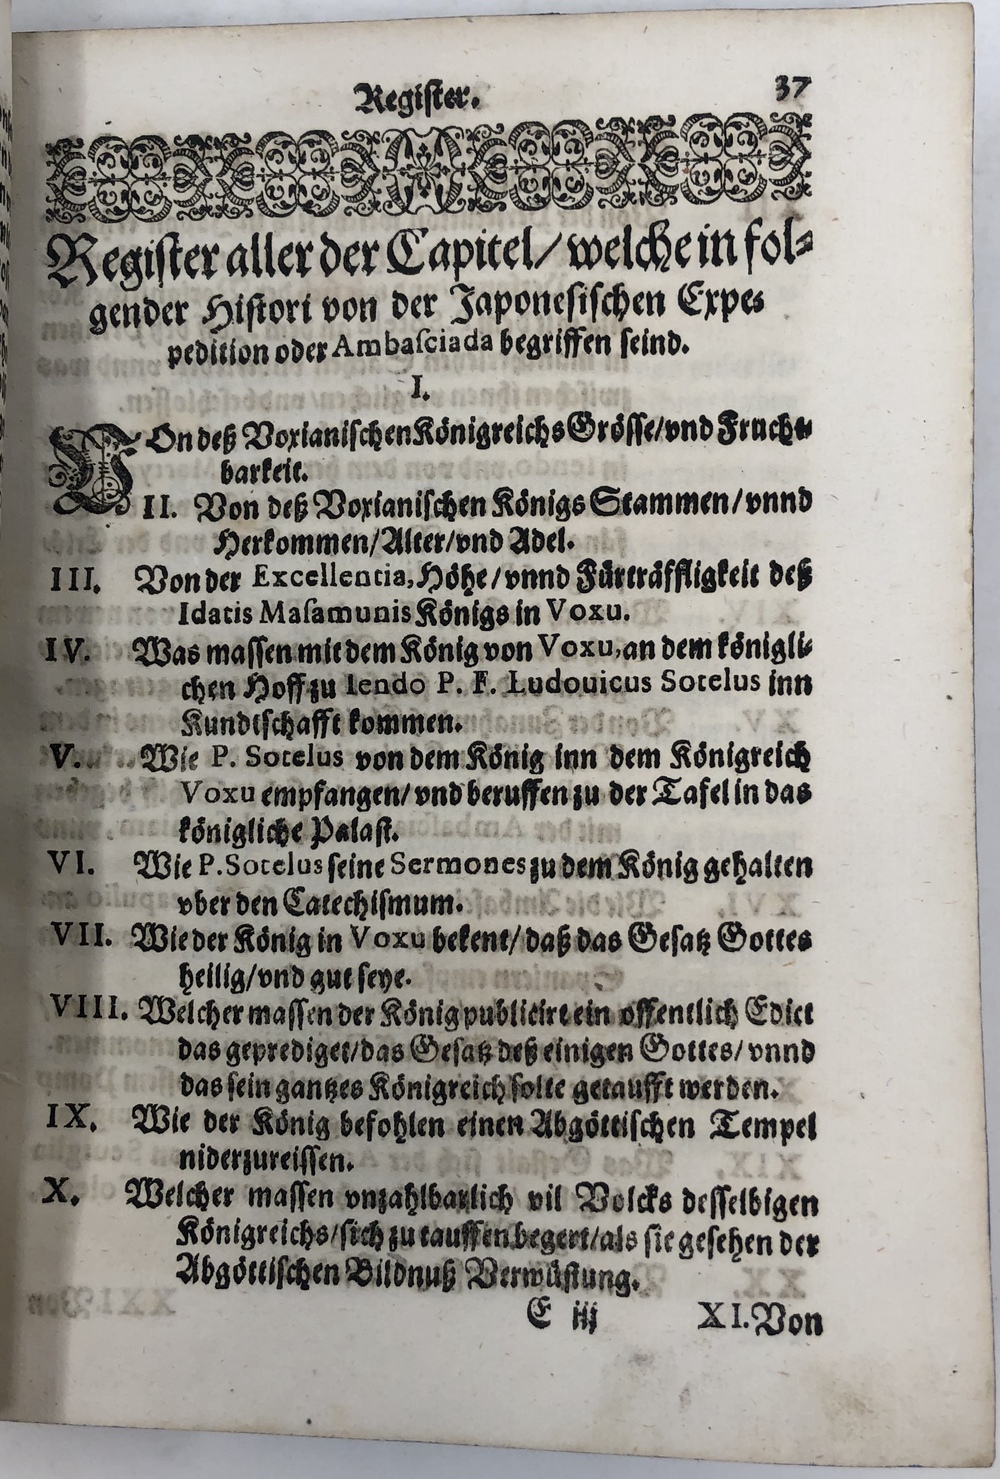 Register. 37
Register aller der Capitel/ welche in fol⸗
gender Histori von der Japonesischen Expe⸗
pedition oder Ambaſciada begriffen seind.
I.
VOn deß Voxianischen Königreichs Grösse/ vnd Frucht⸗
barkeit.
II. Von deß Voxianischen Königs Stammen/ vnnd
Herkommen/ Alter/ vnd Adel.
III. Von der Excellentia, Höhe/ vnnd Fürträffligkeit deß
Idatis Maſamunis Königs in Voxu.
IV. Was massen mit dem König von Voxu, an dem königli⸗
chen Hoff zu Iendo P. F. Ludouicus Sotelus inn
Kundtschafft kommen.
V. Wie P. Sotelus von dem König inn dem Königreich
Voxu empfangen/ vnd beruffen zu der Tafel in das
königliche Palast.
VI. Wie P. Sotelus seine Sermones zu dem König gehalten
vber den Catechismum.
VII. Wie der König in Voxu bekent/ daß das Gesatz Gottes
heilig/ vnd gut seye.
VIII. Welcher massen der König publicirt ein offentlich Edict
das geprediget/ das Gesatz deß einigen Gottes/ vnnd
das sein gantzes Königreich solte getaufft werden.
IX. Wie der König befohlen einen Abgöttischen Tempel
niderzureissen.
X. Welcher massen vnzahlbarlich vil Volcks desselbigen
Königreichs/ sich zu tauffen begert/ als sie gesehen der
Abgöttischen Bildnuß Verwüstung.
E iij XI. Von